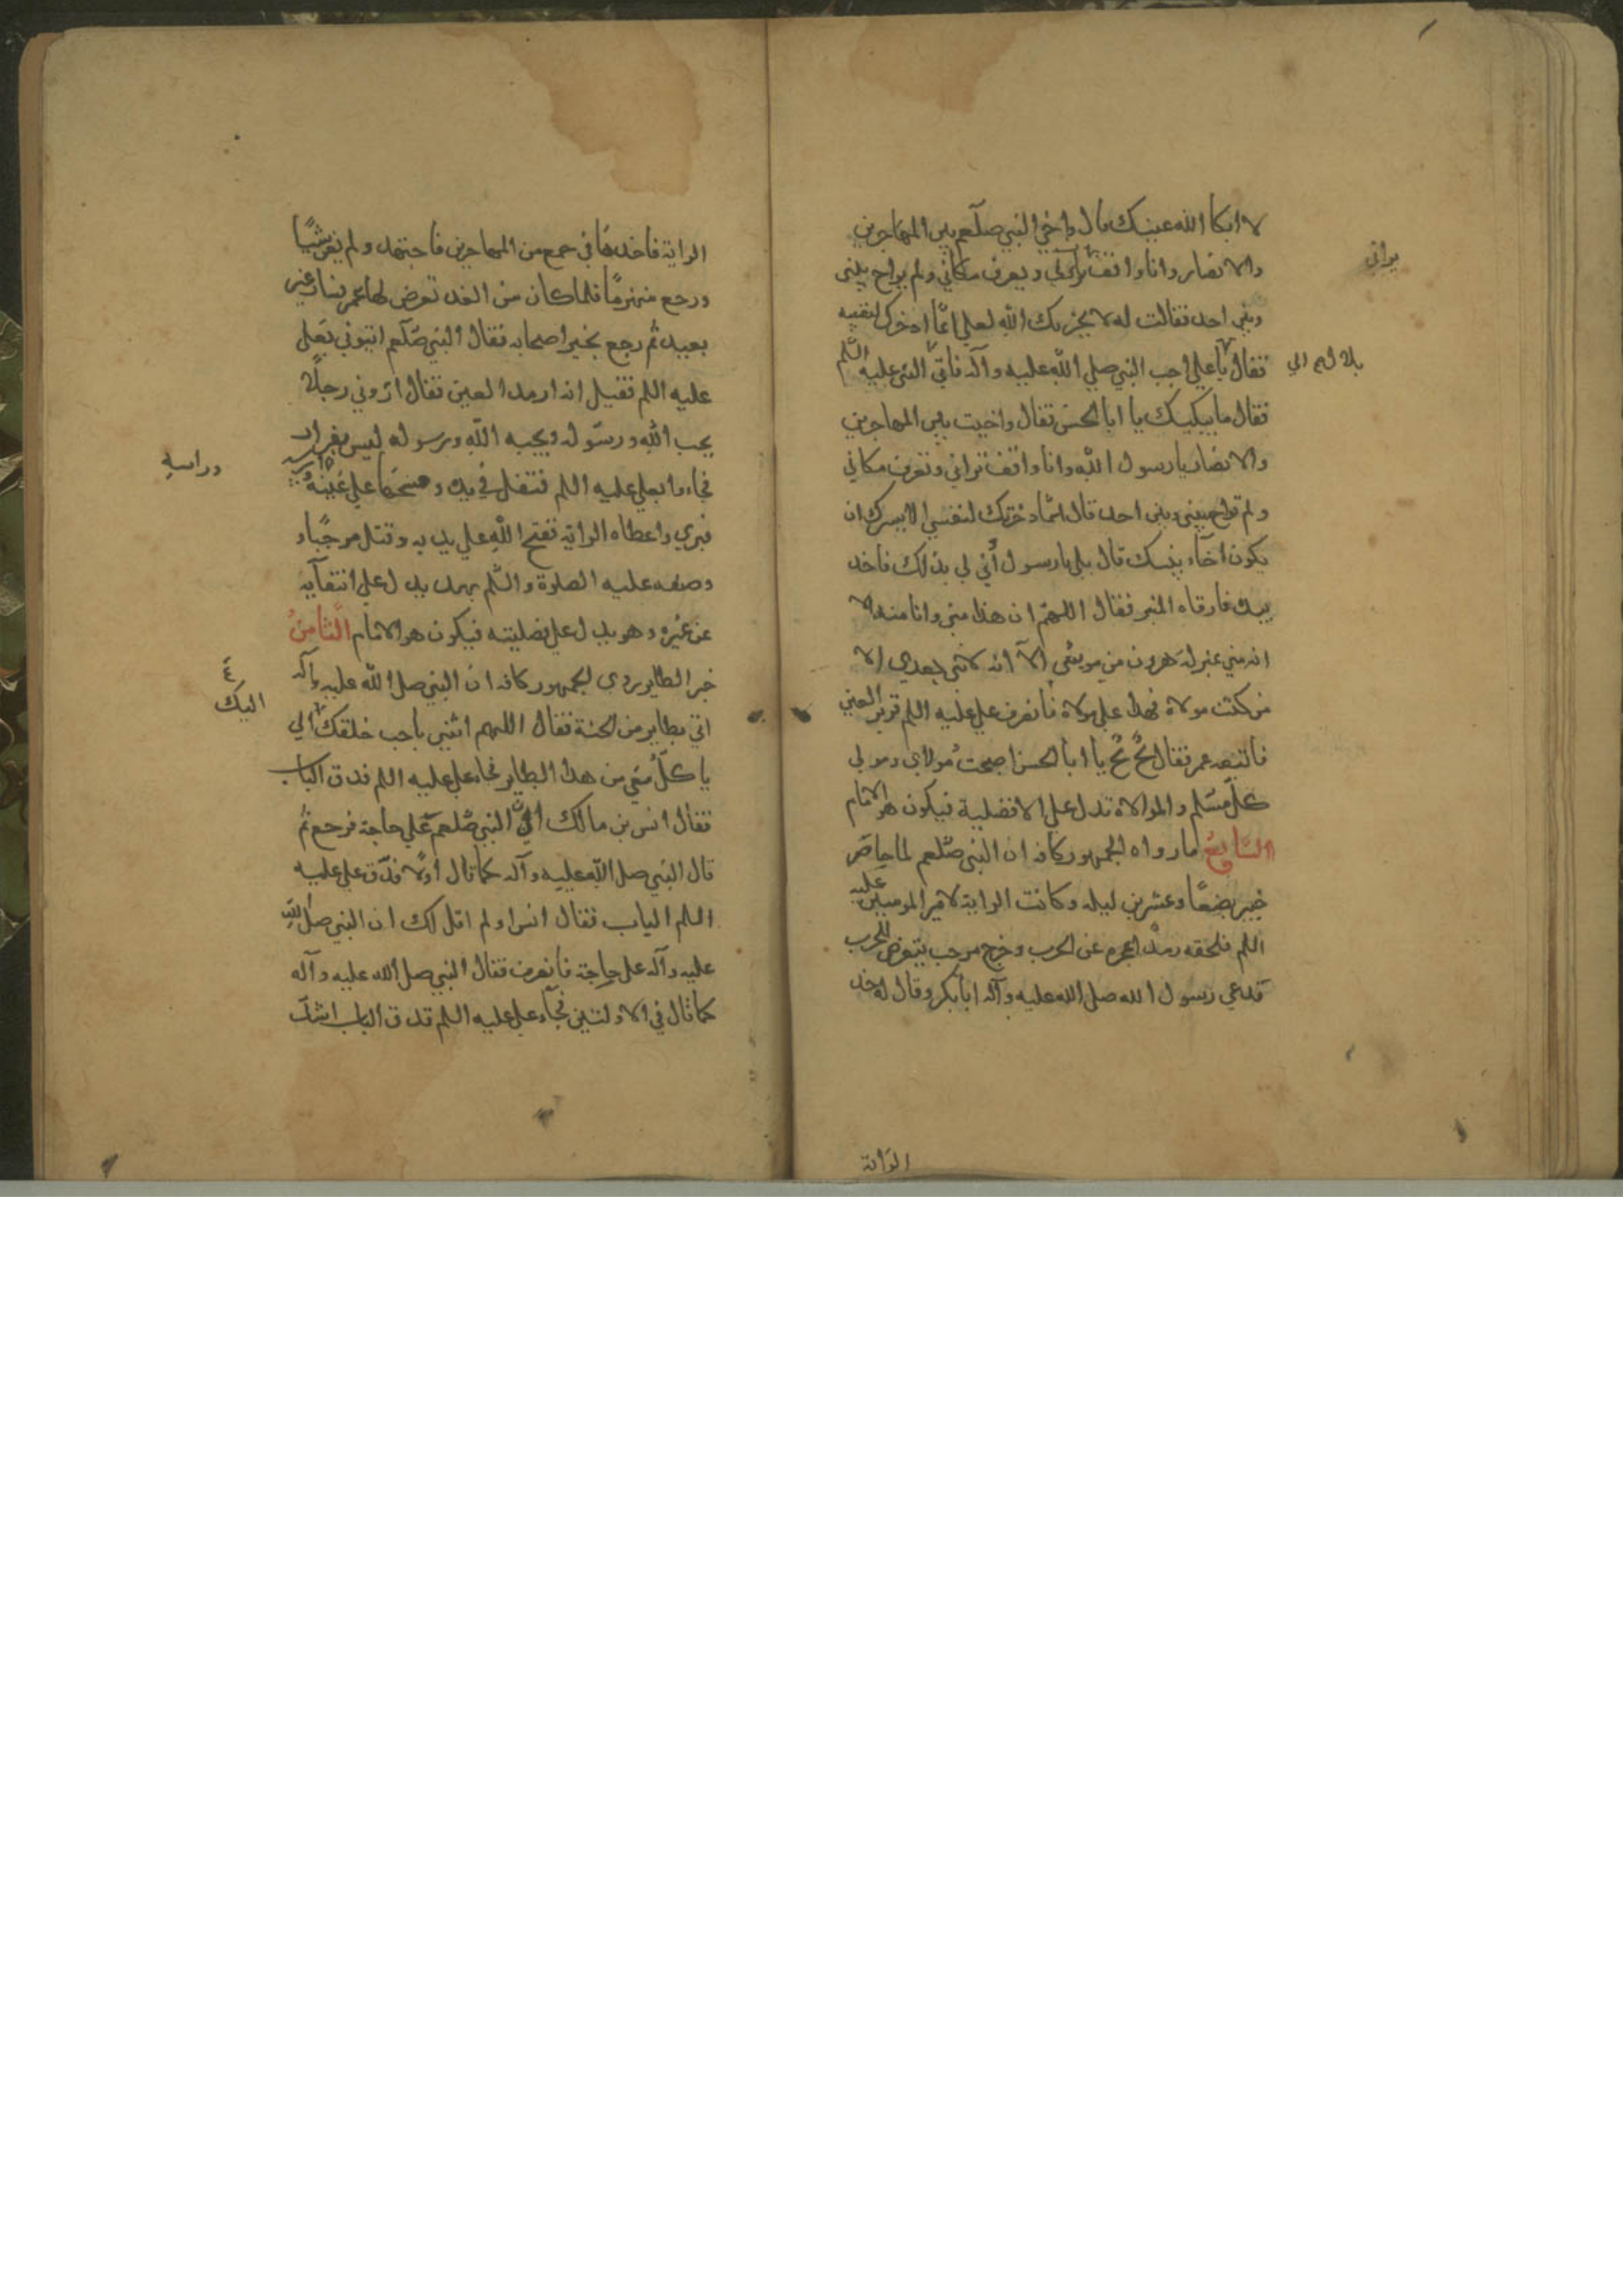 لا ابكا الله عينيك قال واخي النبي صلعم بين المهاجرين
والانصار وانا واقف يراني ويعرف مكاني ولم يواخ بيني
يراني
وبين احد فقالت له لا يحزنك الله لعله انما ادخرك لنفسه
فقال يا علي اجب النبي صلي الله عليه وآله فاتي النبي عليه السلم
بلال
فقال ما يبكيك يا ابا الحسن فقال واخيت بين المهاجرين
والانصار يا رسول الله وانا واقف تراني وتعرف مكاني
ولم تواخ بيني وبين احد قال انما ذخرتك لنفسي الا يسرك ان
يكون اخاء نبيك قال بلي يا رسول أني لي بذلك فاخذ
بيده فارقاه المنبر فقال اللهم ان هذا مني وانا منه الا
انه مني بمنزلة هرون من موسى الا انه لا نبي بعدي الا
من كنت مولاه فهذا علي مولاه فانصرف علي عليه السلم قرير العين
فاتبعه عمر فقال بخ بخ يا ابا الحسن اصبحت مولاي ومولي
كل مسلم والموالاة تدل علي الافضلية فيكون هو الامام
السابع ما رواه الجمهور كافه ان النبي صلعم لما حاصر
خيبر بضعًا وعشرين ليله وكانت الراية لامير المومنين عليه
السلم فلحقه رمد اعجزه عن الحرب وخرج مرحب يتعرض للحرب
فدعي رسول الله صلي الله عليه وآله ابا بكر وقال له خذ
الراية
الراية فاخذها في جمع من المهاجرين فاجتهد ولم يغن شيًا
ورجع منهزمًا فلما كان من الغد تعرض لها عمر فسار غير
بعيد ثم رجع يخبر اصحابه فقال النبي صلعم ايتوني بعلي
عليه السلم فقيل انه ارمد العين فقال اروني رجلًا
يحب الله ورسوله ويحبه الله ورسوله ليس بفرار
فجاءوا بعلي عليه السلم فتفل في يده ومسحها علي عينيه
وراسه
فبري واعطاه الراية ففتح الله علي يديه وقتل مرحبًا و
وصفه عليه الصلوة والسلم بهذا يدل علي انتفآيه
عن غيره وهو يدل علي فضليته فيكون هو الامام الثامن
خبر الطاير روي الجمهور كافه ان النبي صلي الله عليه وآله
اتي بطاير من الجنة فقال اللهم اتني باحب خلقك الي
اليك
ياكل معي من هذا الطاير فجاء علي عليه السلم فدق الباب
فقال انس بن مالك ان النبي صلعم علي حاجة فرجع ثم
قال النبي صلي الله عليه وآله كما قال اولًا فدق علي عليه
السلم الباب فقال انس اولم اقل لك ان النبي صلي الله
عليه وآله علي حاجة فانصرف فقال النبي صلي الله عليه وآله
كما قال في الاولتين فجآء علي عليه السلم فدق الباب اشد